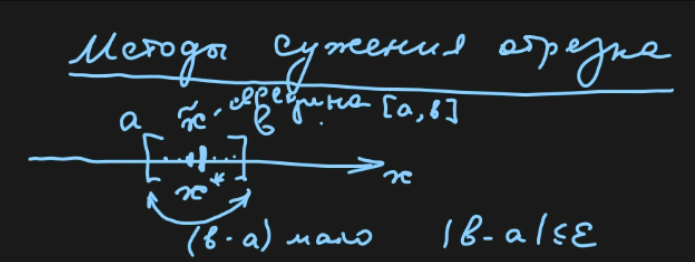 Методы сужения отрезка
a x̃ - середина [a, b]
b
x* x
(b - a) мало |b - a| ≤ ε